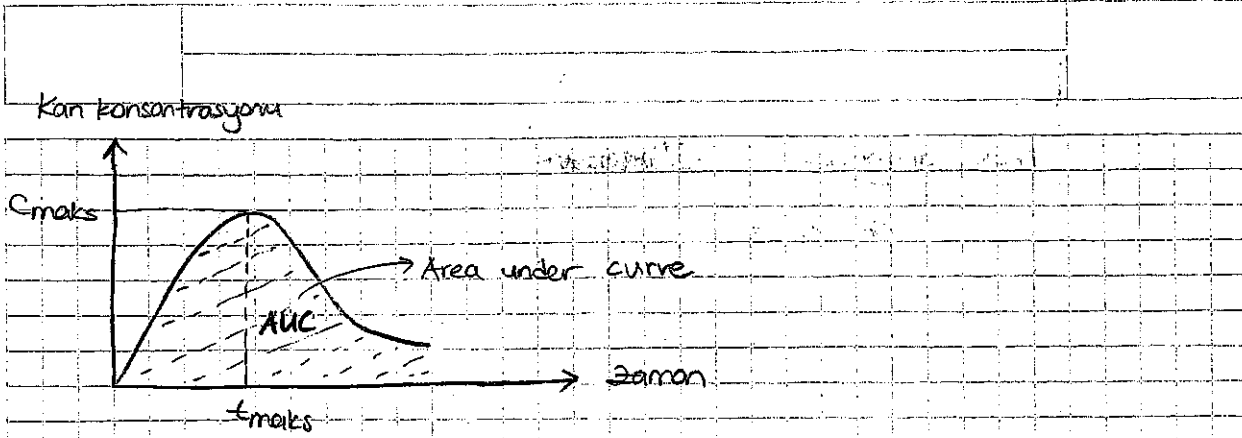 Kan konsantrasyonu
Cmaks
Area under curve
AUC
zaman
tmaks